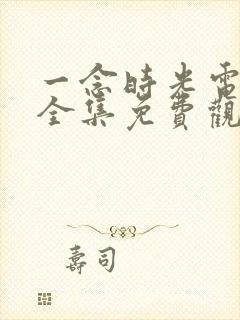 一念時光電
全集免費觀
壽司